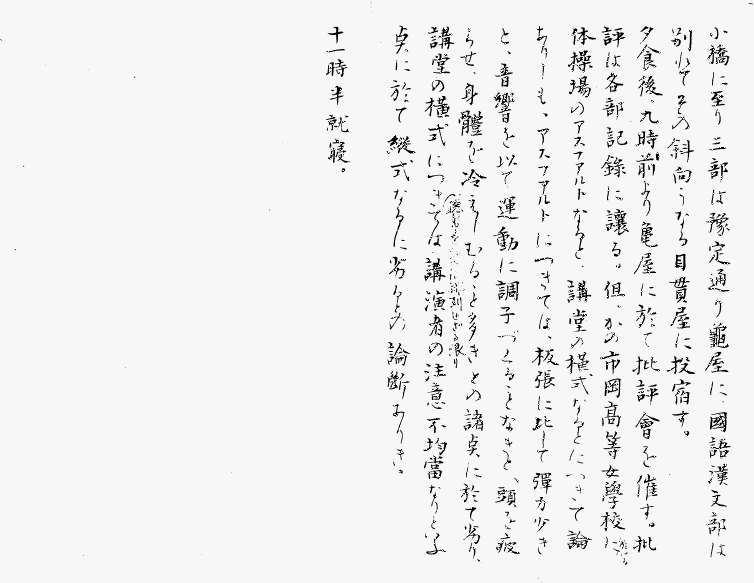 小橋に至り三部は豫定通り龜屋に、國語漢文部は
別れてその斜向うなる目貫屋に投宿す。
夕食後、九時前より亀屋に於て批評會を催す。批
評は各部記錄に讓る。但、かの市岡高等女學校に
体操場のアスファルトなると、講堂の横式なるとにつきて論
ありしも、アスファルトにつきては、板張に比して彈力少き
と、音響を以て運動に調子づくることなきと、頭を疲
らせ、身體を冷えしむること多きとの諸点に於て劣り、
講堂の横式につきては、講演者の注意不均當なりといふ
せざる限り
点に於て縱式なるに劣るとの論斷ありき。
十一時半就寝。